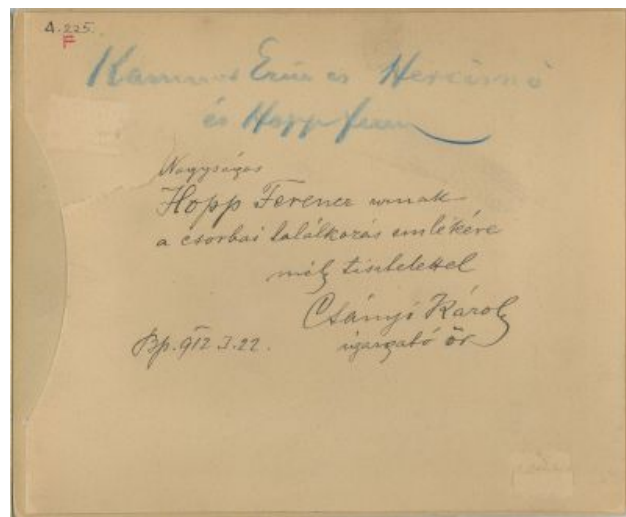 A.225.
F
Ernő és
és Hopp
Nagyságos
Hopp Ferenc urnak
a csorbai találkozás emlékére
mély tisztelettel
Csányi Károly
igazgató őr
Bp. 912 I. 22.